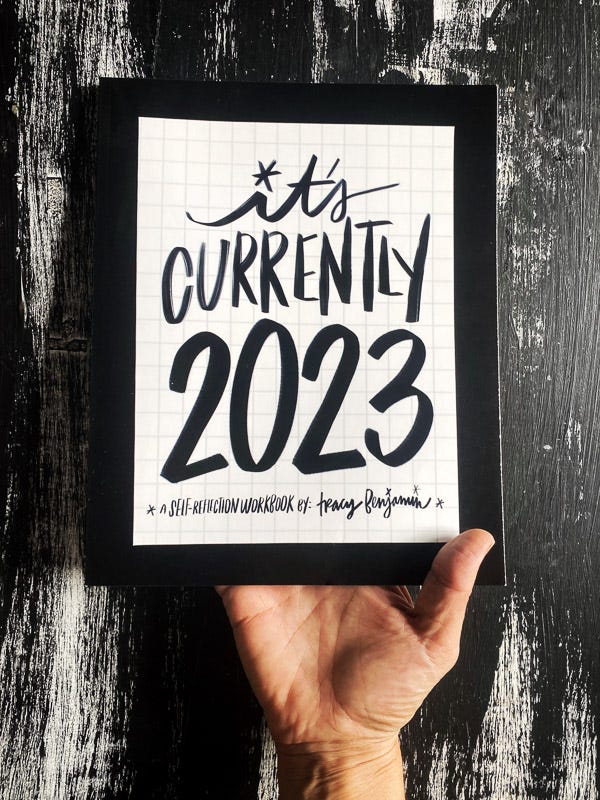 it's
CURRENTLY
2023
* A SELF-REFLECTION WORKBOOK BY: tracy benjamin *